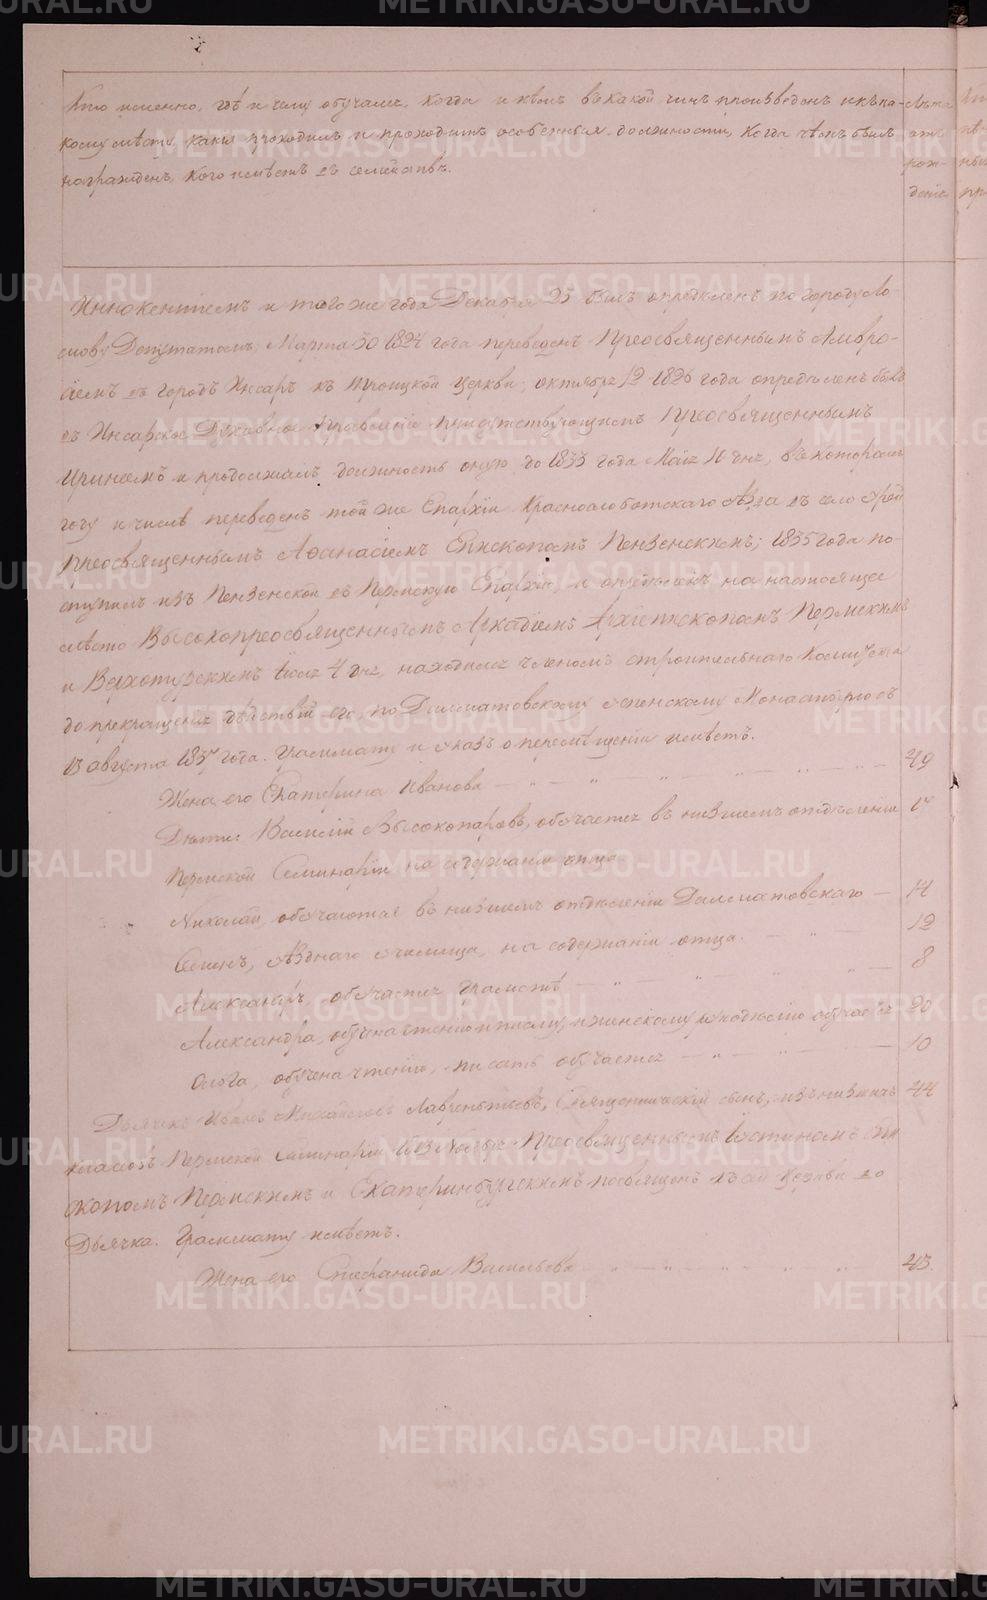 Кто именно, где и чему обучался, когда и кем в какой чин произведен и к ка-
кому месту, какия проходил и проходит особенныя должности, когда чем был
награжден, кого имеет в семействе.
Лета
от
рож-
дения
Иннокентием и того же года Декабря 23 был определен по городу
Депутатом; Марта 30 1824 года переведен Преосвященным Амвро-
сием в город Инсар к Троицкой церкви; октября 12 1826 года определен был
в Инсарское Духовное Правление Присутствующим Преосвященным
Иринеем и продолжал должность оную до 1833 года Маія 16 дня, в котором
году и числе переведен той же Епархіи Краснослободскаго уезда в село
Преосвященным Афанасіем Епископом Пензенским; 1835 года по-
ступил из Пензенской в Пермскую Епархію, и определен на настоящее
место Высокопреосвященным Аркадіем Архіепископом Пермским
и Верхотурским Іюля 4 дня, находился членом строительнаго Комитета
до прекращенія действій его, по Далматовскому Успенскому Монастырю с
13 августа 1837 года. Граммату и указ о перемещеніи имеет.
Жена его Екатерина Иванова 49
Дети: Василій Высокопаров, обучается в низшем отделеніи
Пермской Семинаріи на содержаніи отца
Николай, обучаются в низшем отделеніи Далматовскаго 14
Семен, уезднаго училища, на содержаніи отца. 12
Александр, обучается грамоте 8
Александра, обучена чтению и письму, и женскому рукоделію обучается 20
Ольга, обучена чтенію, писать обучается 10
Дьячек Иван Михайлов Лаврентьев, Священническій сын, из низших 44
классов Пермской Семинаріи Ноября Преосвященным Іустином Епи
скопом Пермским и Екатеринбургским посвящен к сей церкви во
Дьячка. Граммату имеет.
Жена его Стефанида Васильева 43.
METRIKI.GASO-URAL.RU